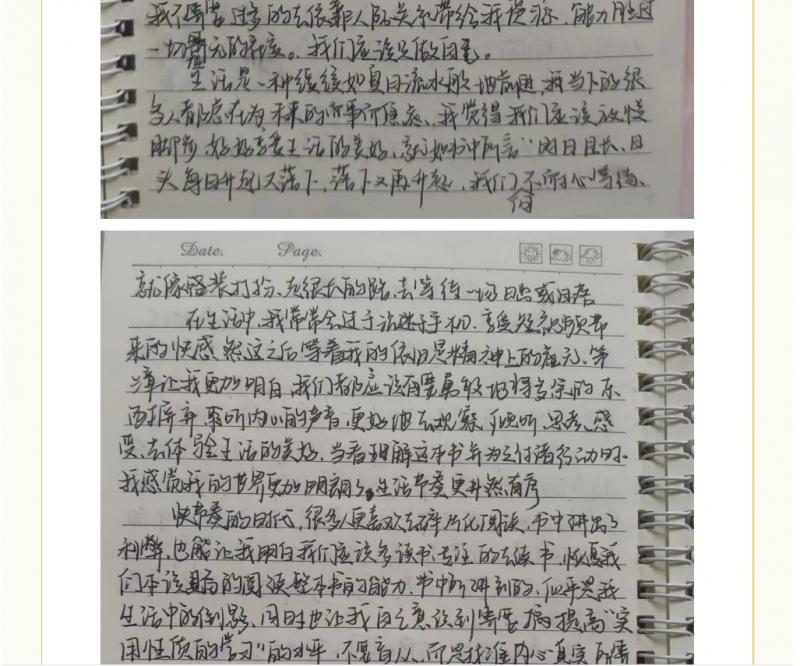 我不需要过多的去依靠人际关系带给我谈资,能力胜过
一切 的 。我们应该只做自己。
生活是一种缓缓如夏日流水般地前进,我当下的很
多人都总在为未来的 事而焦虑,我觉得我们应该放慢
脚步,好好享受生活的美好,就如书中所言"时日且长,日
头每日升起又落下,落下又再升起,我们何不耐心等待、
Date. Page.
就像 装打扮、走很长的路、去等待一场日出或日落
在生活中,我常常会过于沉迷于手机,享受短视频带
来的快感,然这之后等着我的依旧是精神上的 ,第
章让我更加明白,我们都应该有要勇敢地将多余的东
西摒弃,聆听内心的声音,更好地去观察、倾听、思考、感
受、去体验生活的美好,当看理解这本书并为之付诸行动时,
我感觉我的世界更加明朗了,生活节奏更井然有序
快节奏的时代,很多人更喜欢去碎片化阅读,书中讲出了
利弊,也能让我明白我们应该多读书,专注的去读书,恢复我
们本该具有的阅读整本书的能力,书中所讲到的,似乎是我
生活中的倒影,同时也让我自己意识到需要 提高"实
用性质的学习"的水平,不要盲从,而思 内心真实所需